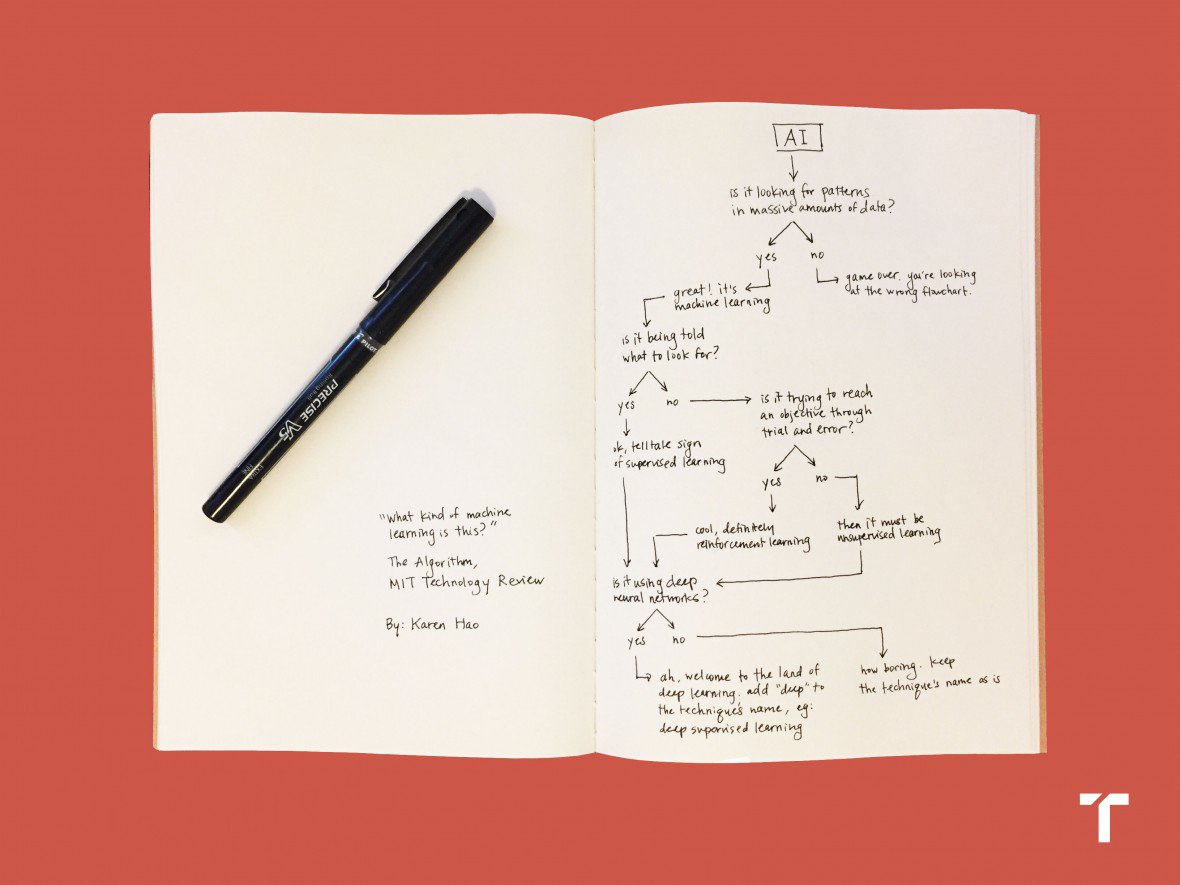 PILOT
PRECISE V5
Rolling Ball
EXTRA
FINE
"what kind of machine
learning is this?"
The Algorithm,
MIT Technology Review
By: Karen Hao
AI
is it looking for patterns
in massive amounts of data?
yes
no
game over. you're looking
at the wrong flowchart.
great! it's
machine learning
is it being told
what to look for?
yes
no
is it trying to reach
an objective through
trial and error?
ok, telltale sign
of supervised learning
yes
no
cool, definitely
reinforcement learning
then it must be
unsupervised learning
is it using deep
neural networks?
yes
no
ah, welcome to the land of
deep learning. add "deep" to
the technique's name, eg:
deep supervised learning
how boring. keep
the technique's name as is